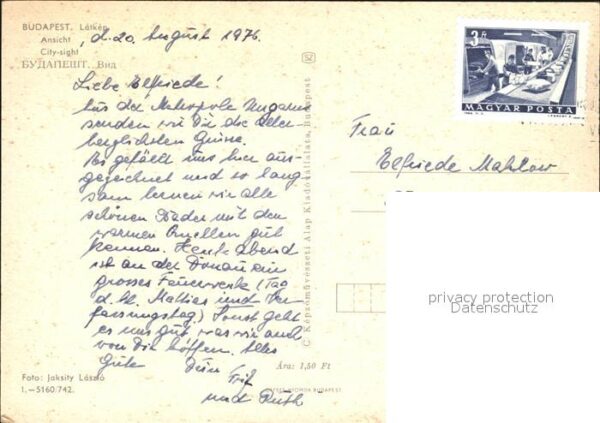 BUDAPEST. Látkép
Ansicht
City-sight
БУДАПЕШТ. Вид
d. 20. August 1976.
Liebe Elfriede!
Aus der Metropole Ungarns
senden wir Dir die aller-
herzlichsten Grüsse.
Es gefällt uns hier aus-
gezeichnet und so lang-
sam lernen wir alle
schönen Bäder mit den
warmen Quellen gut
kennen. Heute abend
ist an der Donau ein
grosses Feuerwerk (Tag
d. hl. und Ver-
fassungstag.) Sonst geht
es uns gut, was wir auch
von Dir hoffen. Alles
Gute Dein Fritz
und Ruth
Foto: Jaksity László
1.—5160/742.
C Képzőművészeti Alap Kiadóvállalata, Budapest
Ára: 1,50 Ft
3 Ft
MAGYAR POSTA
Frau
Elfriede Mahlow
privacy protection
Datenschutz